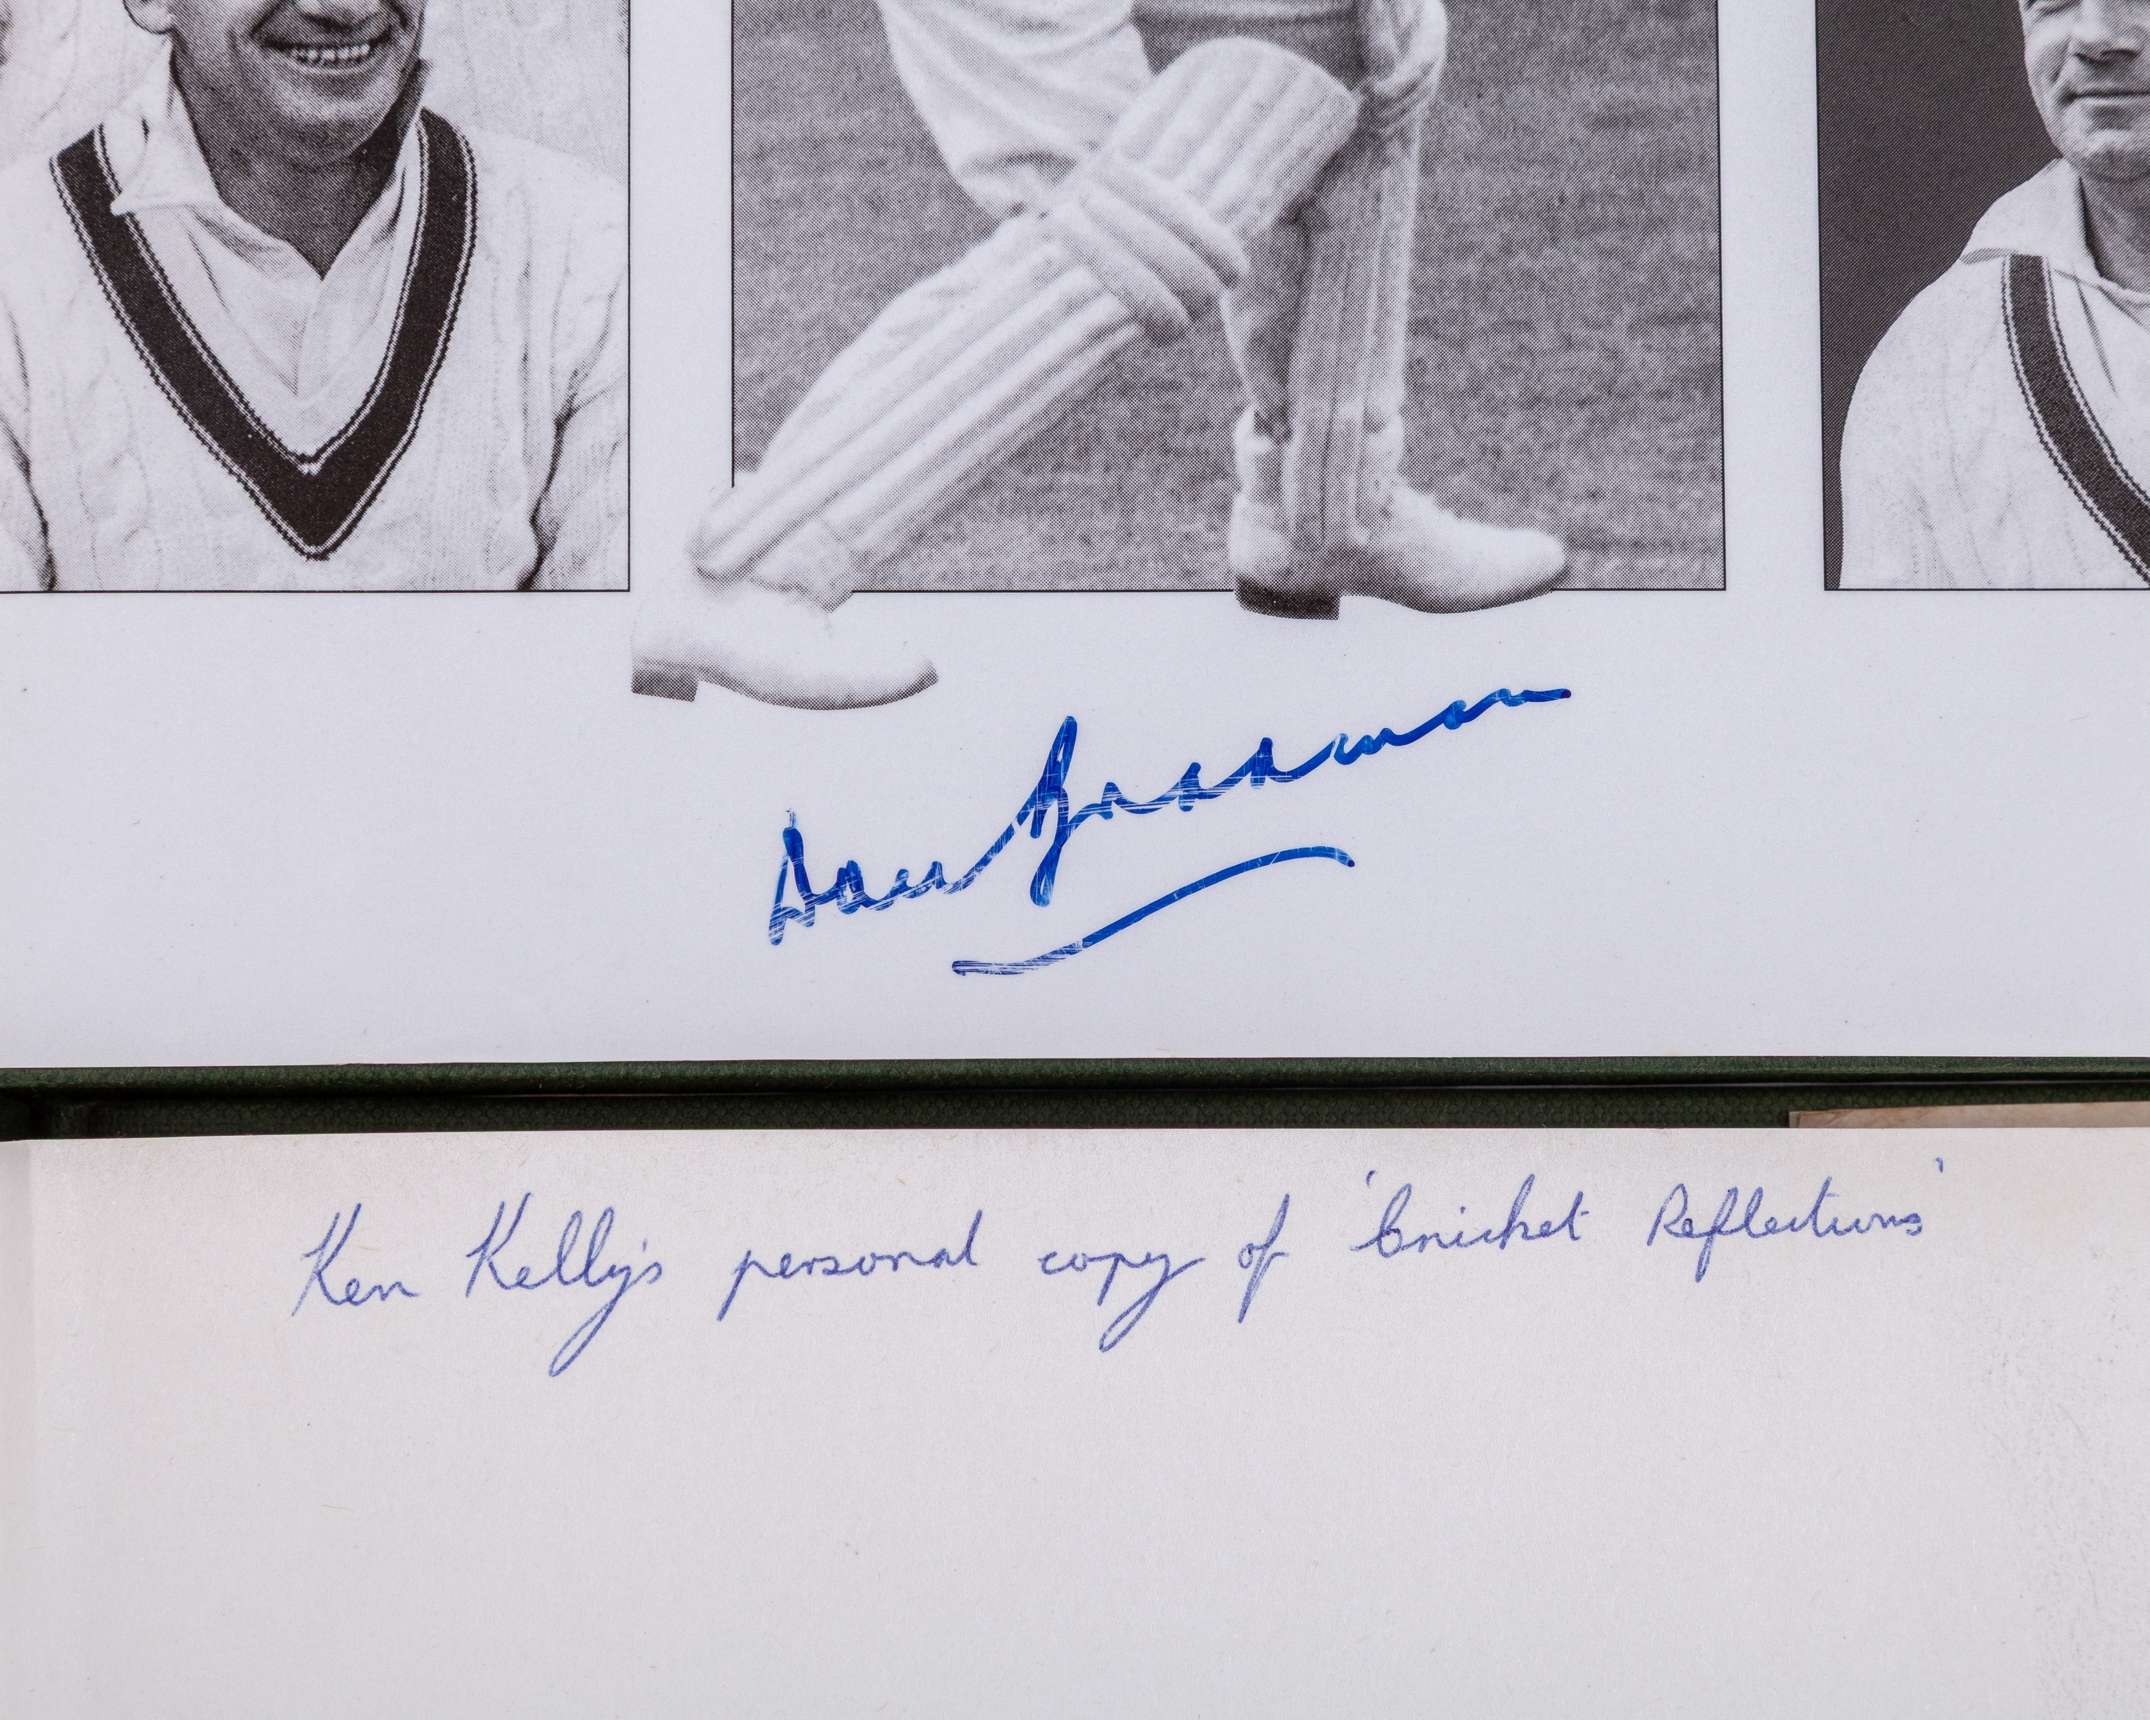 Don Bradman
Ken Kelly's personal copy of 'Cricket Reflections'